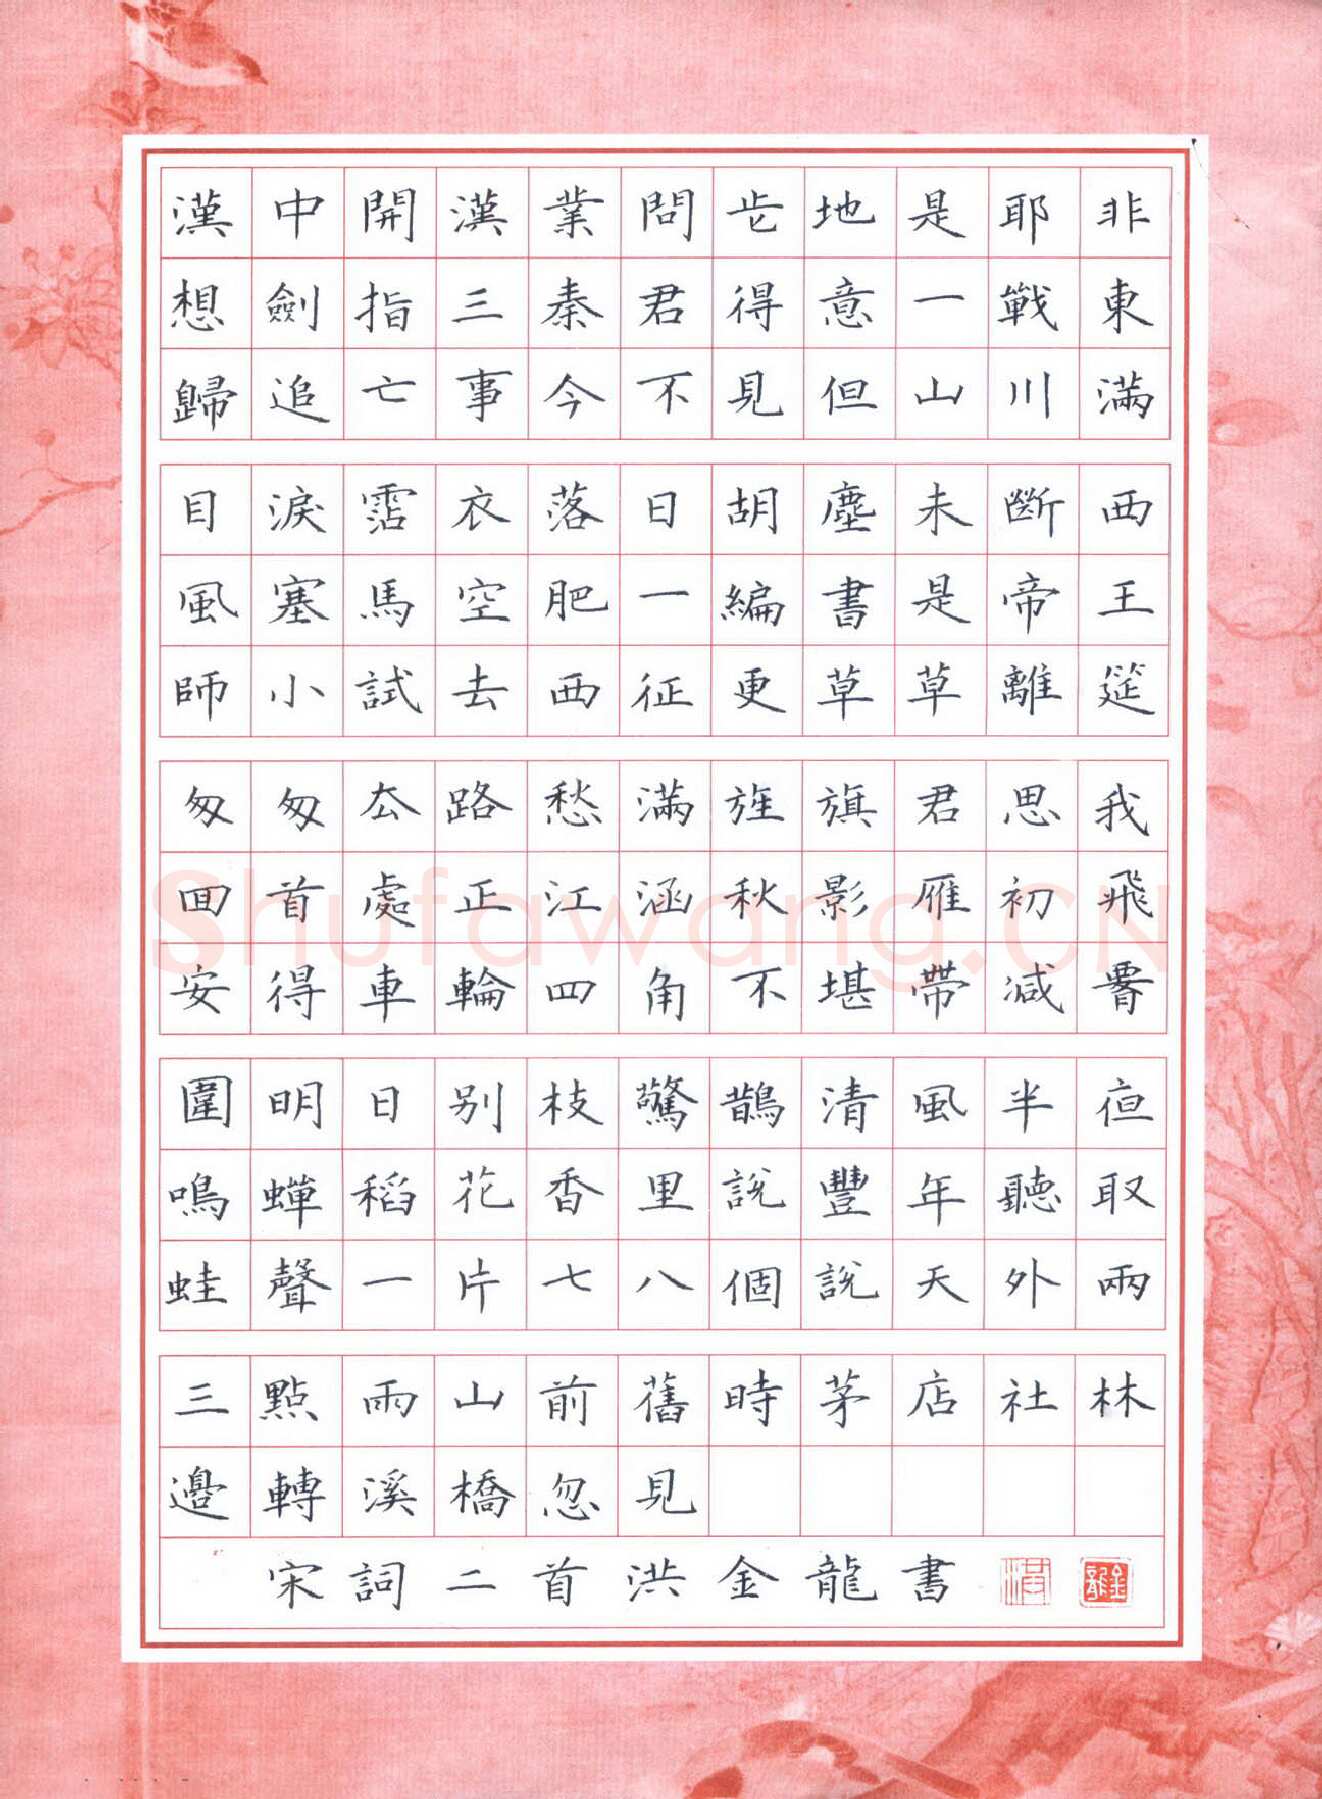 漢中開漢業問此地是耶非
想劍指三秦君得意一戰東
歸追亡事今不見但山川滿
目淚霑衣落日胡塵未斷西
風塞馬空肥一編書是帝王
師小試去西征更草草離筵
匆匆去路愁滿旌旗君思我
囬首處正江涵秋影雁初飛
安得車輪四角不堪帶減腰
圍明日别枝驚鵲清風半夜
鳴蟬稻花香里説豐年聽取
蛙聲一片七八個説天外兩
三點雨山前舊時茅店社林
邊轉溪橋忽見
宋詞二首洪金龍書
Shufawang.CN